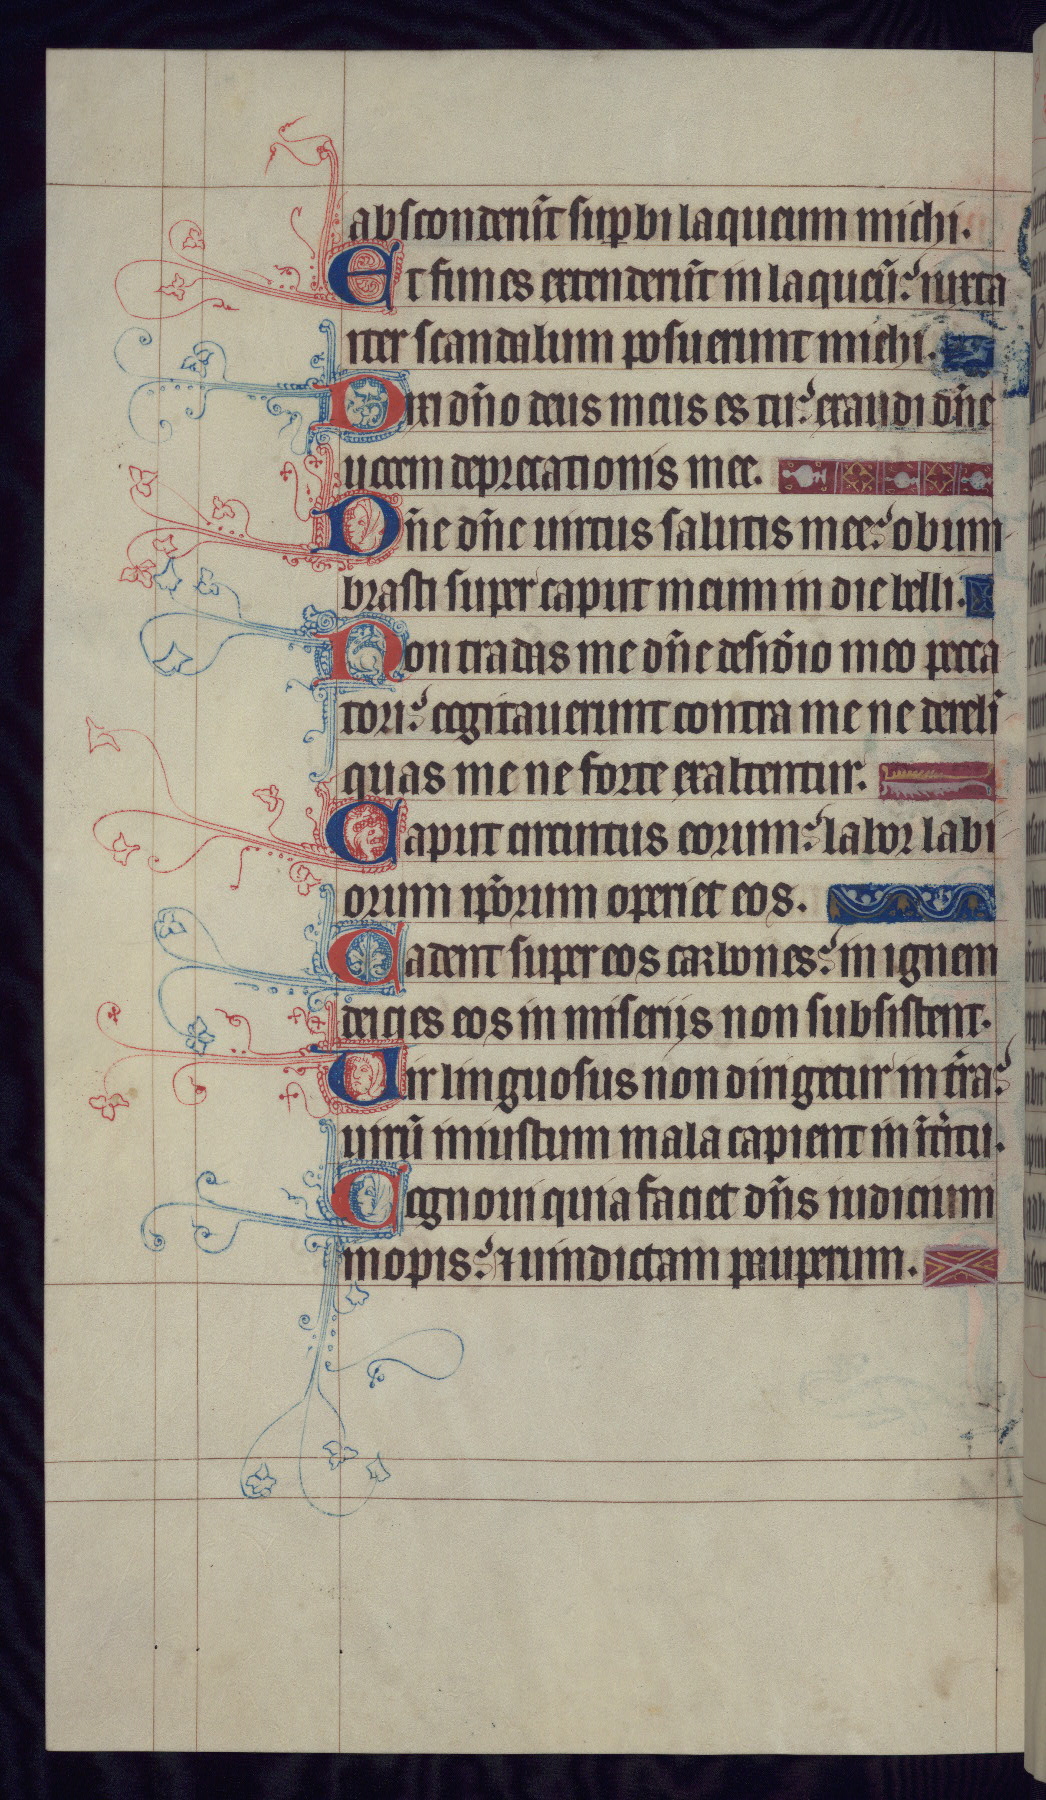 absconderūt suꝑbi laqueum michi.
Et funes extenderūt in laqueū: iuxta
iter scandalum posuerunt michi.
Dixi dño deus meus es tu: exaudi dñe
uocem deprecationis mee.
Dñe dñe uirtus salutis mee: obum
brasti super caput meum in die belli.
Non tradas me dñe desidio meo pecca
tori: cogitauerunt contra me ne dereli
quas me ne forte exaltentur.
Caput circuitus eorum: labor labi
orum iporum operiet eos.
Cadent super eos carbones: in ignem
deicies eos in miserijs non subsistent.
Uir linguosus non dirigetur in tra:
uirū iniustum mala capient in īteitu.
Cognoui quia faciet dñs iudicium
inopis: ⁊ uindictam pauperum.